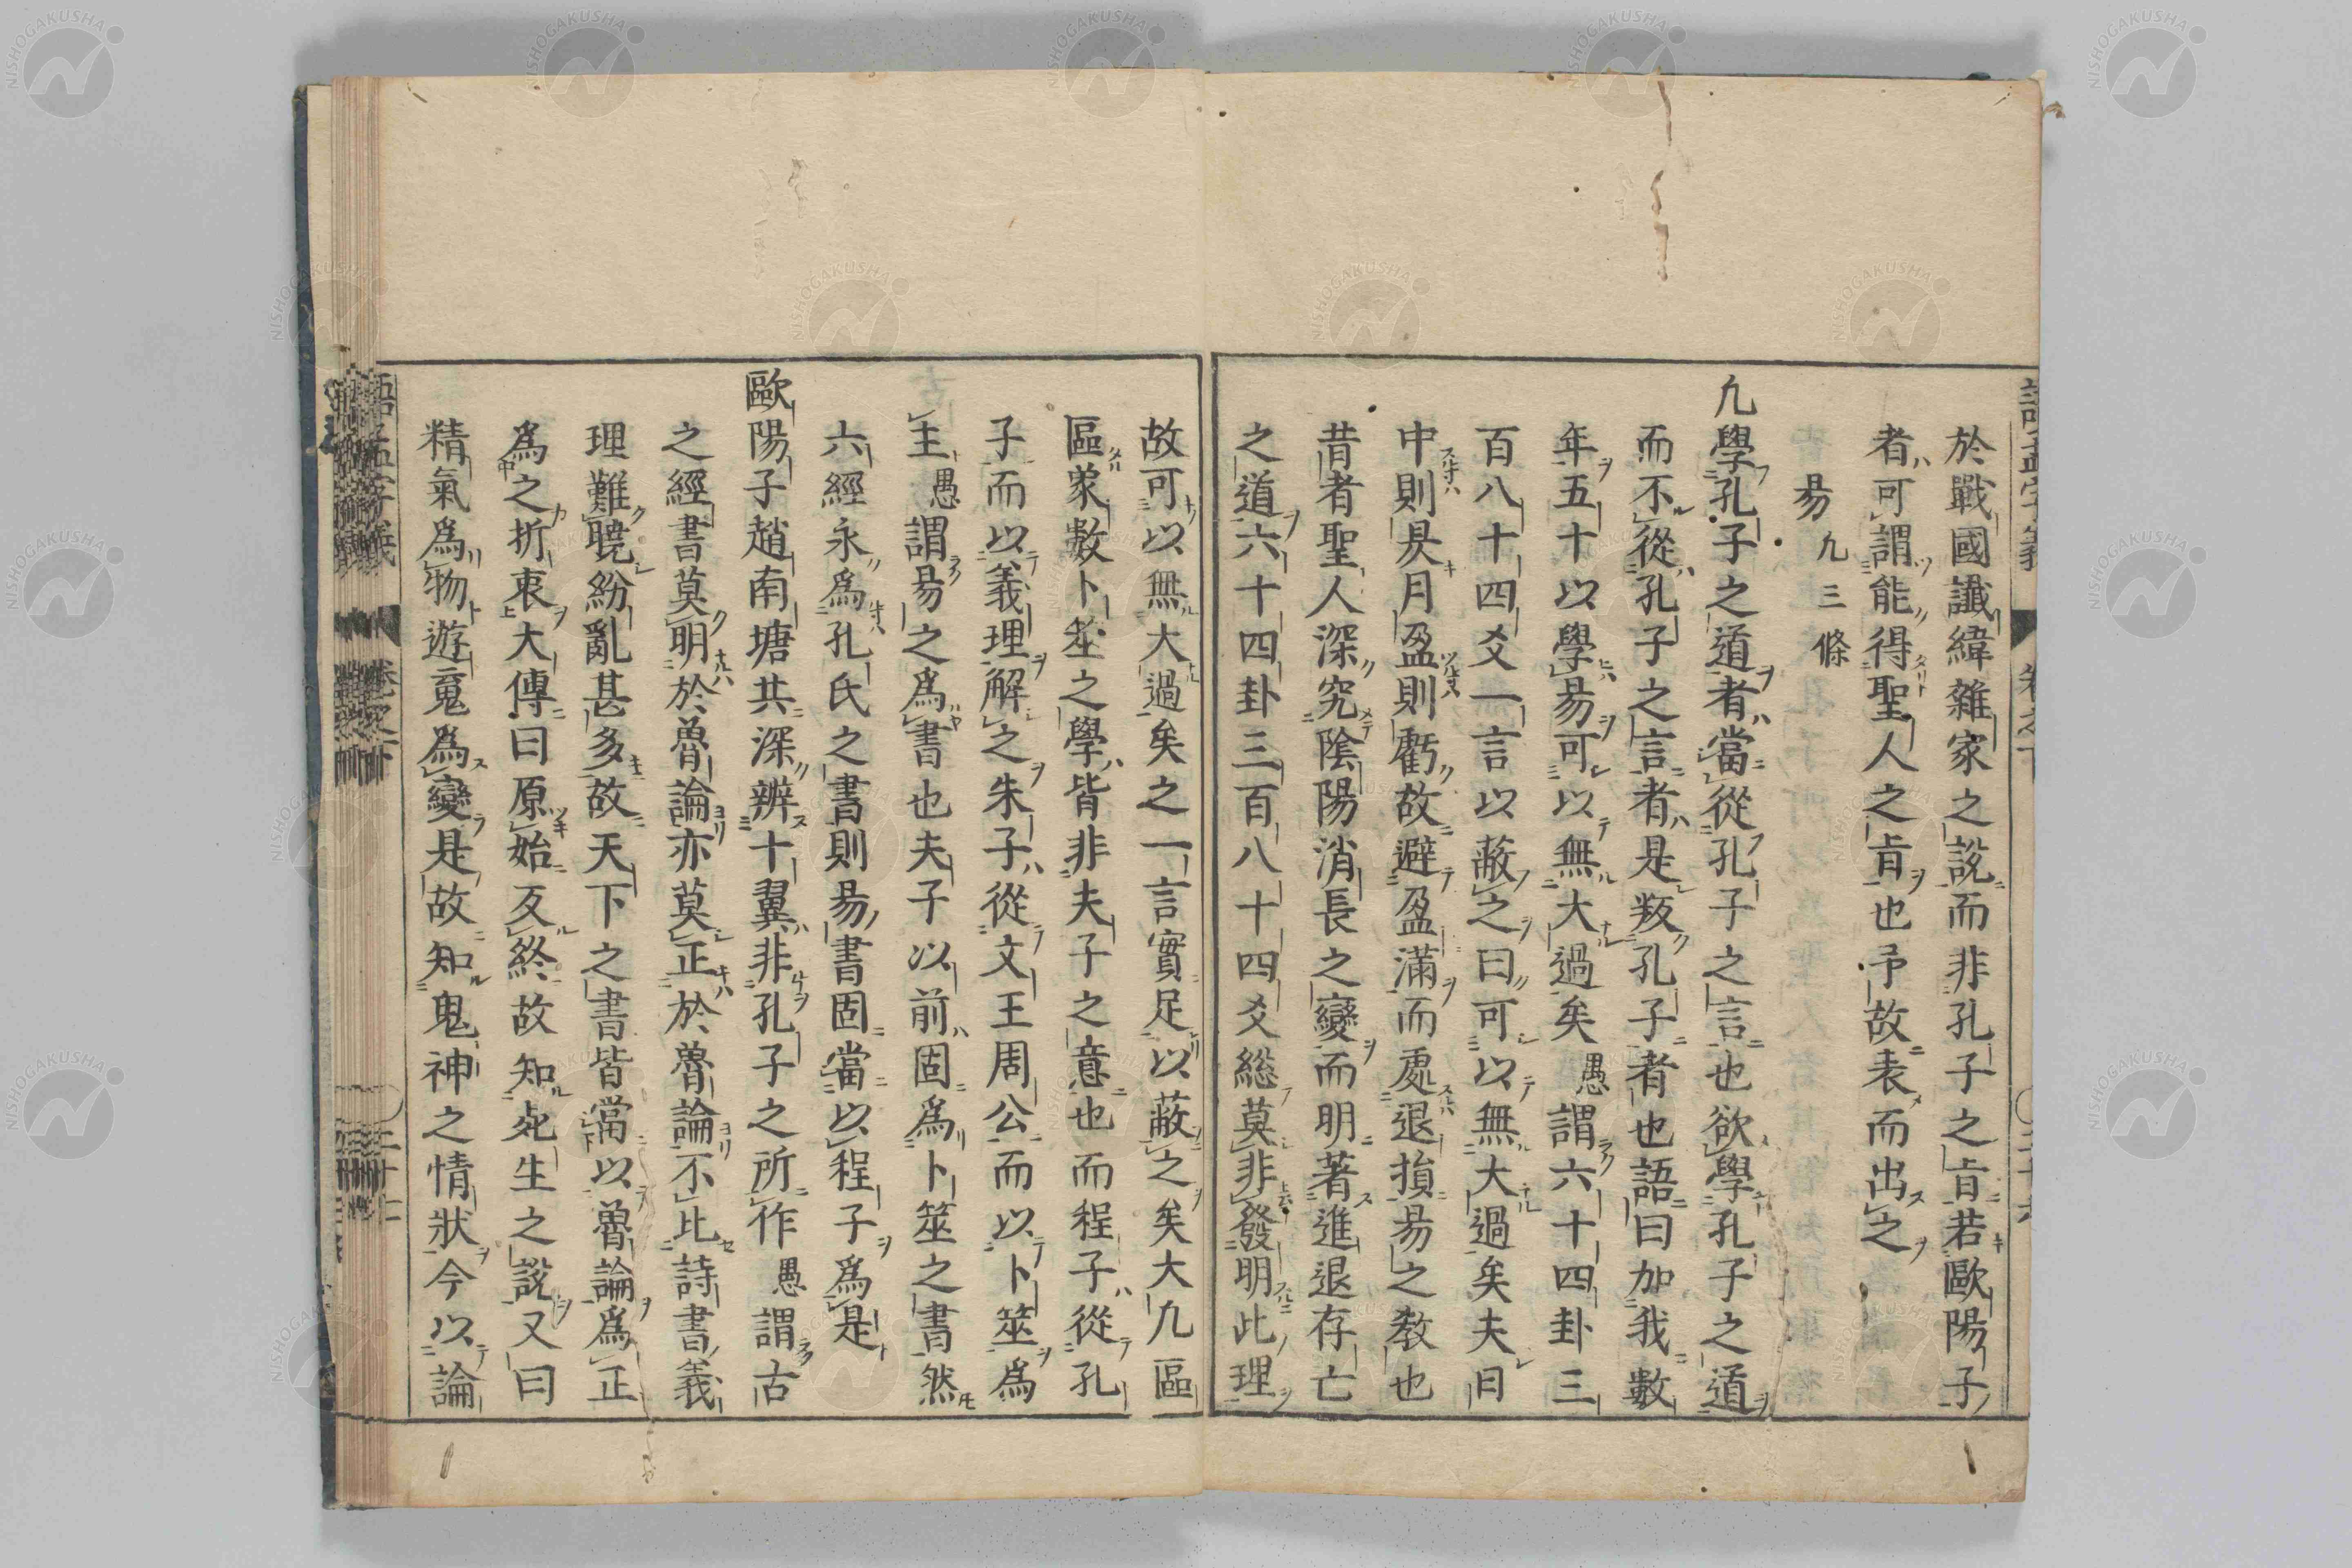 於戰國讖緯雜家之說而非孔子之肯若歐陽子
者可謂能得聖人之肯也予故表而出之
易 凢三條
凢學孔子之道者當從孔子之言也欲學孔子之道
而不從孔子之言者是叛孔子者也語曰加我數
年五十以學易可以無大過矣愚謂六十四卦三
百八十四爻一言以蔽之曰可以無大過矣夫日
中則昃月盈則虧故避盈滿而處退損易之教也
昔者聖人深究陰陽消長之變而明著進退存亡
之道六十四卦三百八十四爻総莫非發明此理
故可以無大過矣之一言實足以蔽之矣大凢區
區象數卜筮之學皆非夫子之意也而程子從孔
子而以義理解之朱子從文王周公而以卜筮爲
主愚謂易之爲書也夫子以前固爲卜筮之書然
六經永爲孔氏之書則易書固當以程子爲是
歐陽子趙南塘共深辨十翼非孔子之所作愚謂古
之經書莫明於魯論亦莫正於魯論不比詩書義
理難曉紛亂甚多故天下之書皆當以魯論爲正
爲之折衷大傳曰原始反終故知死生之說又曰
精氣爲物遊䰟爲變是故知鬼神之情狀今以論
語孟字義 卷之下